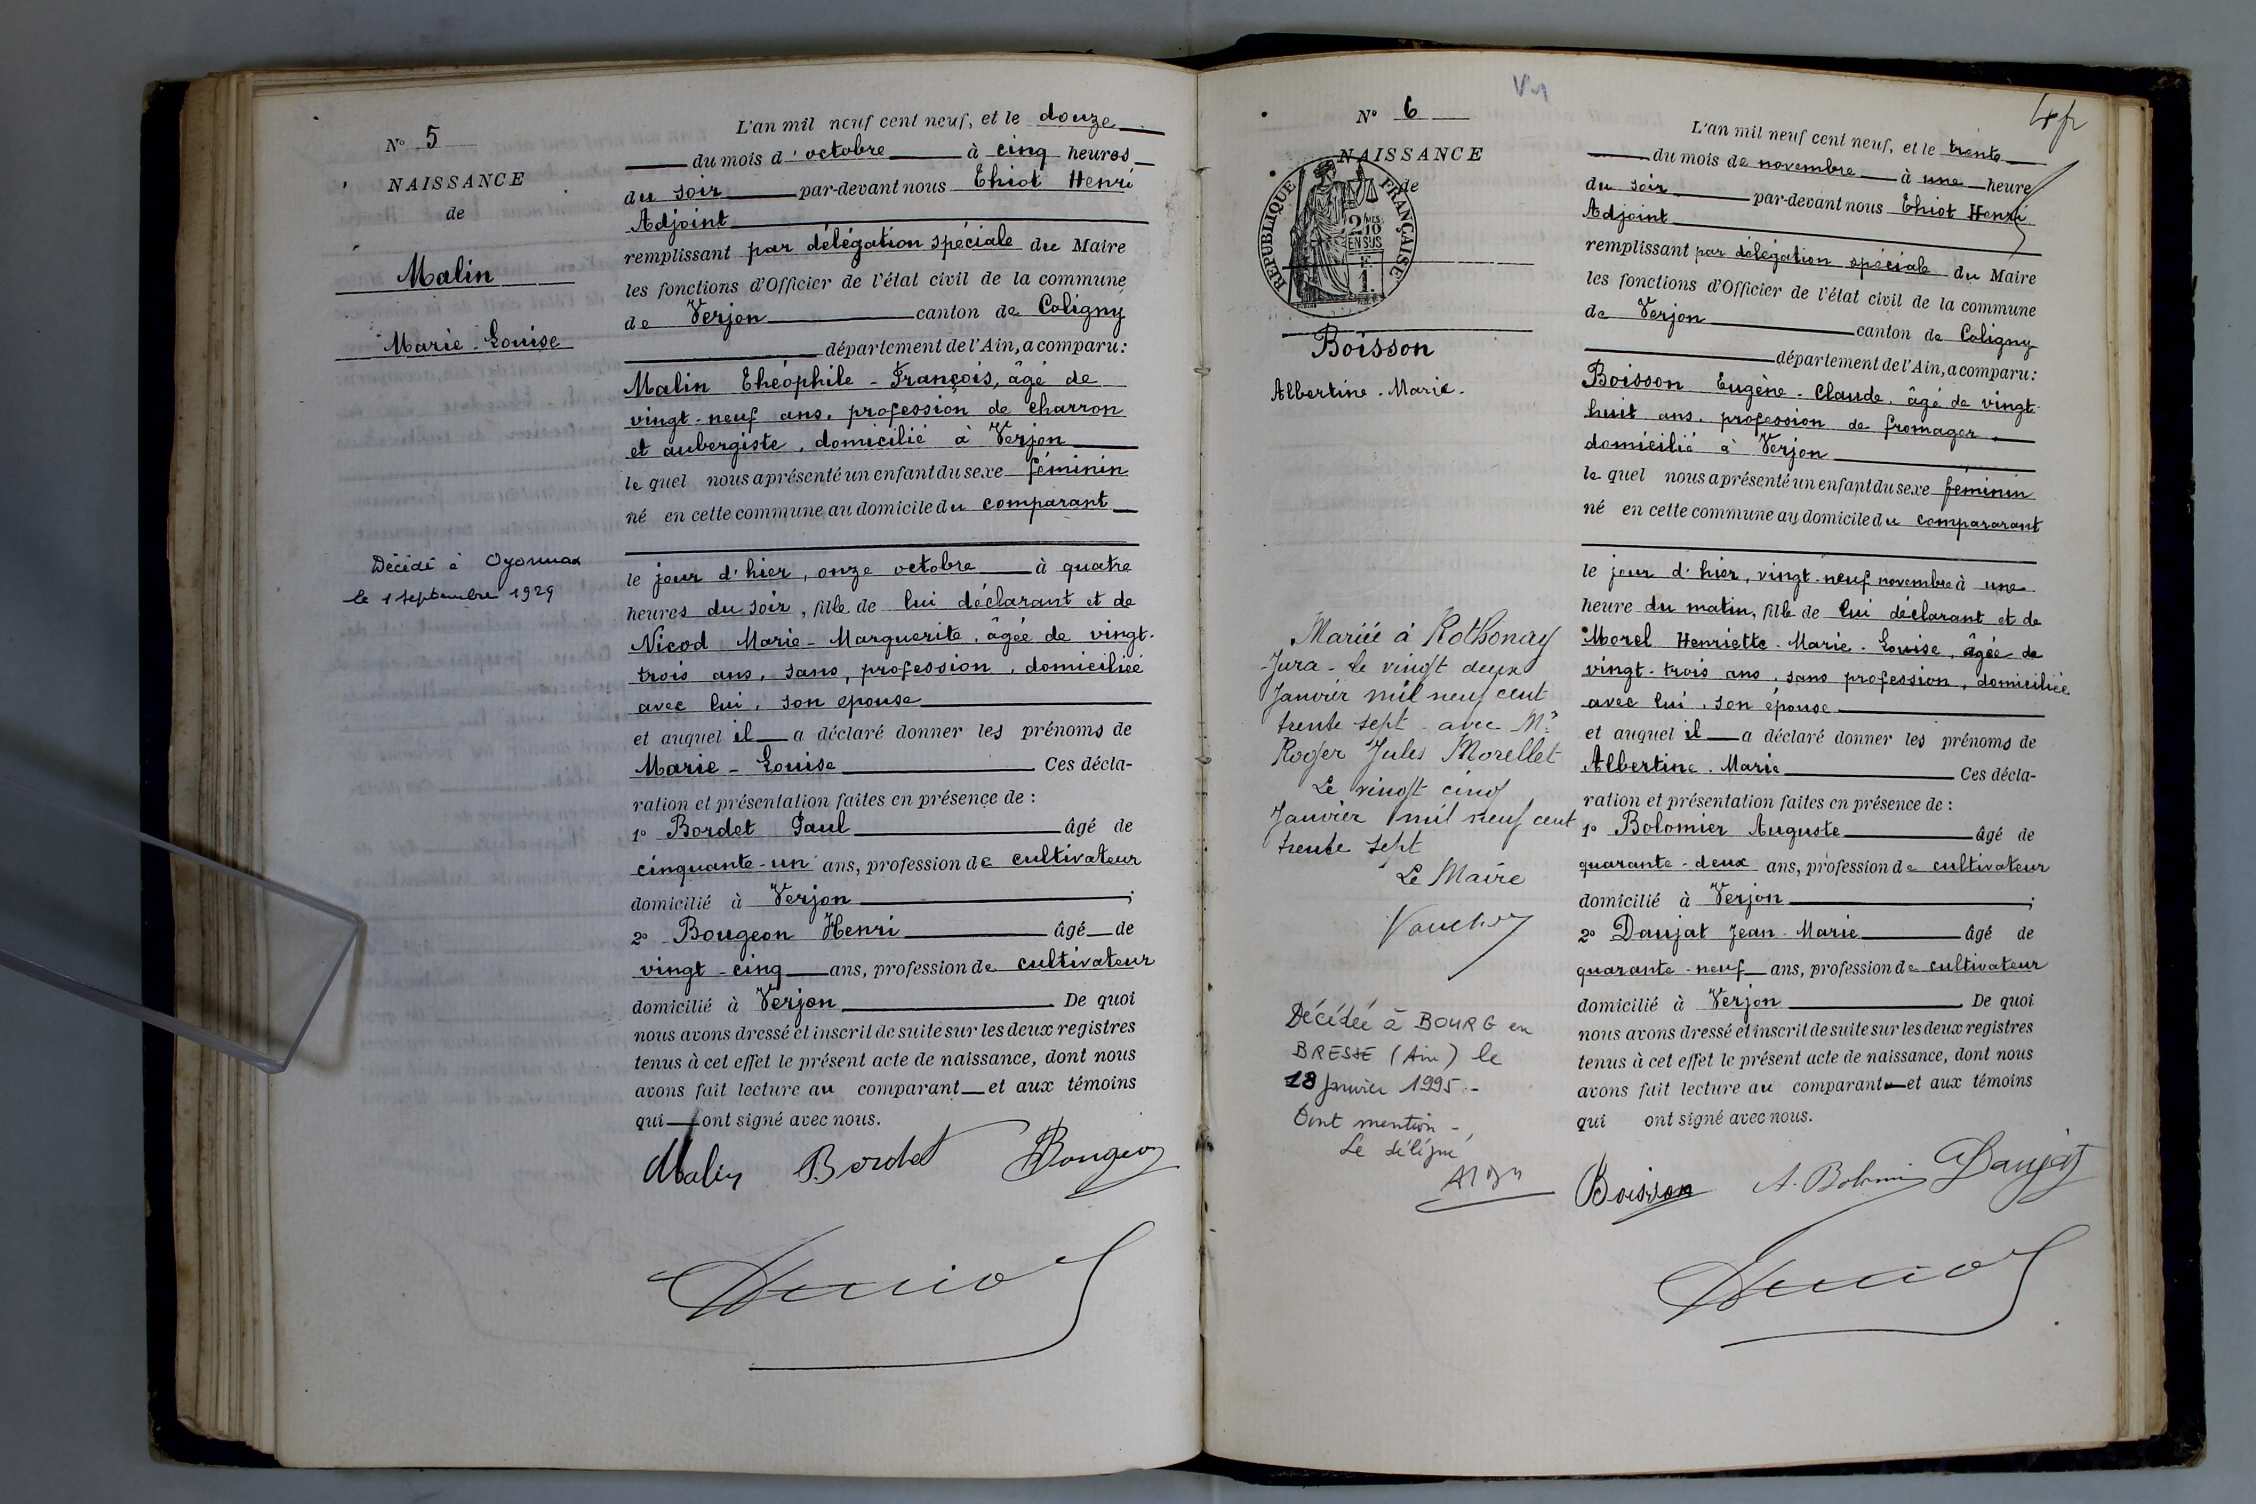 N° 5
NAISSANCE
de
Malin
Marie-Louise
Décédé à Oyonnax
le 1 septembre 1929
L'an mil neuf cent neuf, et le douze
du mois d'octobre à cinq heures
du soir par-devant nous Thiot Henri
Adjoint
remplissant par délégation spéciale du Maire
les fonctions d'Officier de l'état civil de la commune
de Verjon canton de Coligny
département de l'Ain, a comparu:
Malin Théophile-François, âgé de
vingt-neuf ans, profession de charron
et aubergiste, domicilié à Verjon
lequel nous a présenté un enfant du sexe féminin
né en cette commune au domicile du comparant
le jour d'hier, onze octobre à quatre
heures du soir, fille de lui déclarant et de
Nicod Marie-Marguerite, âgée de vingt-
trois ans, sans, profession, domiciliée
avec lui, son epouse
et auquel il a déclaré donner les prénoms de
Marie-Louise Ces décla-
ration et présentation faites en présence de :
1° Bordet Paul âgé de
cinquante-un ans, profession de cultivateur
domicilié à Verjon ;
2° Bougeon Henri âgé de
vingt-cinq ans, profession de cultivateur
domicilié à Verjon De quoi
nous avons dressé et inscrit de suite sur les deux registres
tenus à cet effet le présent acte de naissance, dont nous
avons fait lecture au comparant et aux témoins
qui ont signé avec nous.
Malin Bordet Bougeon
N° 6
NAISSANCE
de
REPUBLIQUE FRANÇAISE
2/10 EN SUS
1 F.
Boisson
Albertine-Marie.
Mariée à Rothonay
Jura - le vingt deux
Janvier mil neuf cent
trente sept - avec Mr
Roger Jules Morellet
Le vingt cinq
Janvier mil neuf cent
trente sept
Le Maire
Décédée à BOURG en
BRESSE (Ain) le
18 Janvier 1995.-
Dont mention -,
Le délégué
4 fr
L'an mil neuf cent neuf, et le trente
du mois de novembre à une heure
du soir par-devant nous Thiot Henri
Adjoint
remplissant par délégation spéciale du Maire
les fonctions d'Officier de l'état civil de la commune
de Verjon canton de Coligny
département de l'Ain, a comparu:
Boisson Eugène-Claude, âgé de vingt-
huit ans, profession de fromager,
domicilié à Verjon
lequel nous a présenté un enfant du sexe féminin
né en cette commune au domicile du compararant
le jour d'hier, vingt-neuf novembre à une
heure du matin, fille de lui déclarant et de
Morel Henriette-Marie-Louise, âgée de
vingt-trois ans, sans profession, domiciliée
avec lui, son épouse
et auquel il a déclaré donner les prénoms de
Albertine-Marie Ces décla-
ration et présentation faites en présence de :
1° Bolomier Auguste âgé de
quarante-deux ans, profession de cultivateur
domicilié à Verjon ;
2° Daujat Jean-Marie âgé de
quarante-neuf ans, profession de cultivateur
domicilié à Verjon De quoi
nous avons dressé et inscrit de suite sur les deux registres
tenus à cet effet le présent acte de naissance, dont nous
avons fait lecture au comparant et aux témoins
qui ont signé avec nous.
Boisson A. Bolomier Daujat